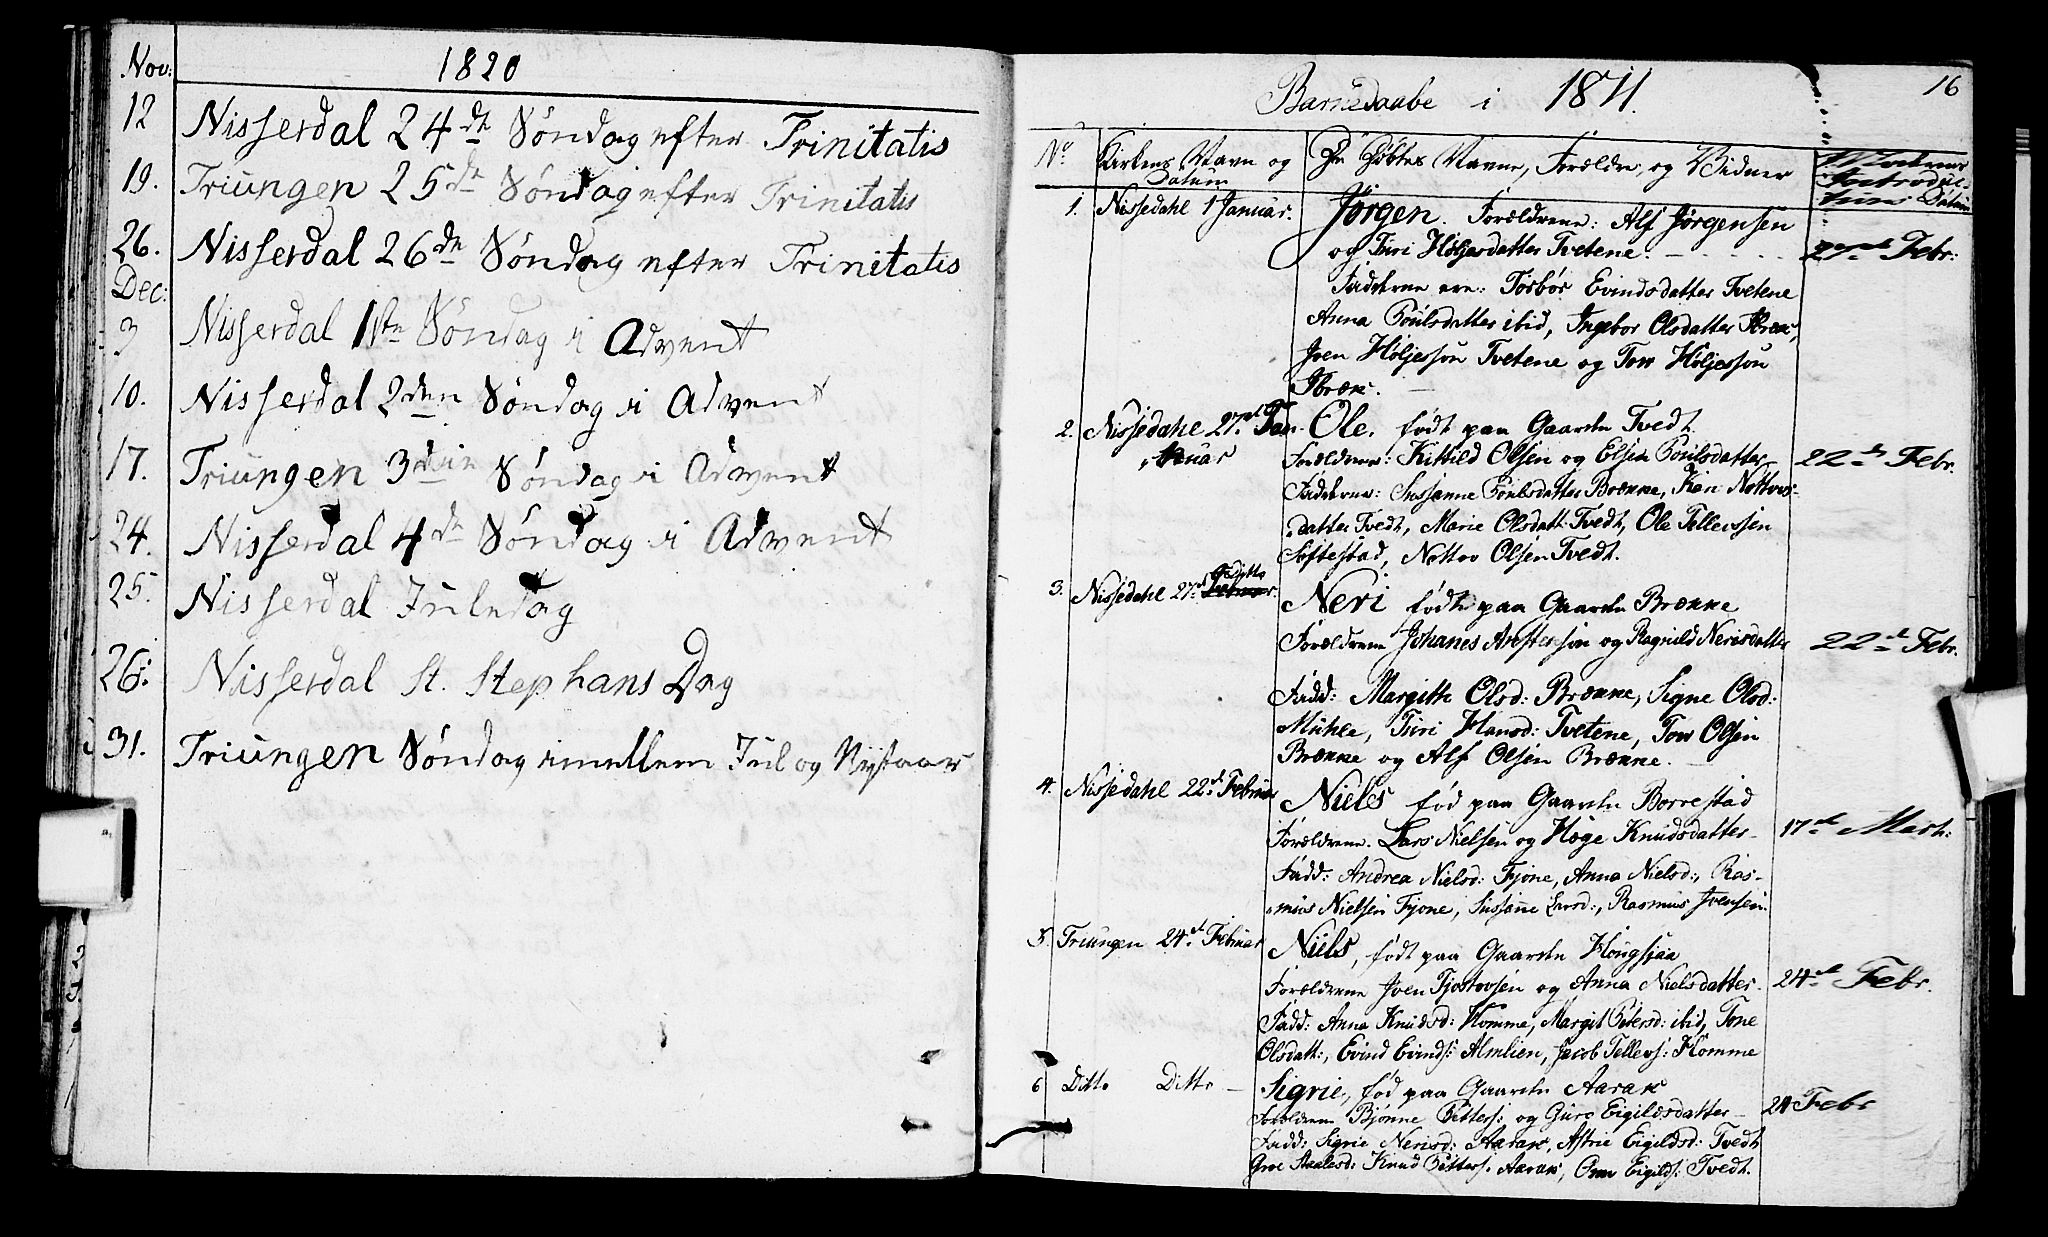 Nov: 1820
12 Nisserdal 24de Søndag efter Trinitatis
19. Triungen 25de Søndag efter Trinitatis
26. Nisserdal 26de Søndag efter Trinitatis
Dec:
3 Nisserdal 1ste Søndag i Advent
10. Nisserdal 2den Søndag i Advent
17. Triungen 3die Søndag i Advent
24. Nisserdal 4de Søndag i Advent
25. Nisserdal Juledag
26. Nisserdal St. Stephans Dag
31. Triungen Søndag imellem Jul og Nytaar
16
Barnedaabe i 1811.
No Kirkens Navn og Datum
De Døbtes Navne, Forældre, og Vidner
Introduc-
tions Datum
1. Nissedahl 1 Januar. Jørgen. Forældrene: Alf Jørgensen
og Turi Høljesdatter Tvetene. 27de Febr:
Fadderne ere: Torbor Evindsdatter Tvetene
Anna Poulsdatter ibid, Ingebor Olsdatter
Joen Høljessøn Tvetene og Tow Høljessøn
2. Nissedahl 27de Jan-
nuar
Ole. født paa Gaarden Tvedt.
Forældrene: Kittild Olsen og Elsin Poulsdatter 22de Febr.
Fadderne: Susanne Poulsdatter Brække, Kari Nottovs-
datter Tvedt, Marie Olsdatt: Tvedt, Ole Tellevssen
Søftestad, Nottov Olsen Tvedt.
3. Nissedahl 27de Ditto
Neri født paa Gaarden Brække
Forældrene Johanes Avestersøn og Ragnild Nerisdatter 22de Febr.
Fadd: Margith Olsd: Brække, Signe Olsd:
Muhle, Turi Hansd: Tvetene, Tow Olsen
Brække og Alf Olsen Brække.
4. Nissedahl 22de Februar Niels fød paa Gaarden Borrestad
Forældrene. Lars Nielsen og Høge Knudsdatter 17de Marts:
Fadd: Andrea Nielsd: Fjone, Anna Nielsd:, Ras-
mus Nielsen Fjone, Susanne Larsd:, Rasmus Jvensen.
5. Triungen 24de Februar Niels, født paa Gaarden Hougsjaa
Forældrene Joen Tjostovsen og Anna Nielsdatter 24de Febr.
Fadd: Anna Knudsd: Homme, Margit Pètersd: ibid, Tone
Olsdatt:, Evind Evinds: Almlien, Jacob Tellevs: Homme
6 Ditto Ditto Sigrie, fød paa Gaarden Aarak
Forældrene Bjønne Pitters: og Guro Eigildsdatter 24 Febr
Fadd: Sigrie Nerisd: Aarak, Astrie Eigildsd: Tvedt
Groe Aslesd: Knud Pitters: Aarak, Osm Eigilds: Tvedt.